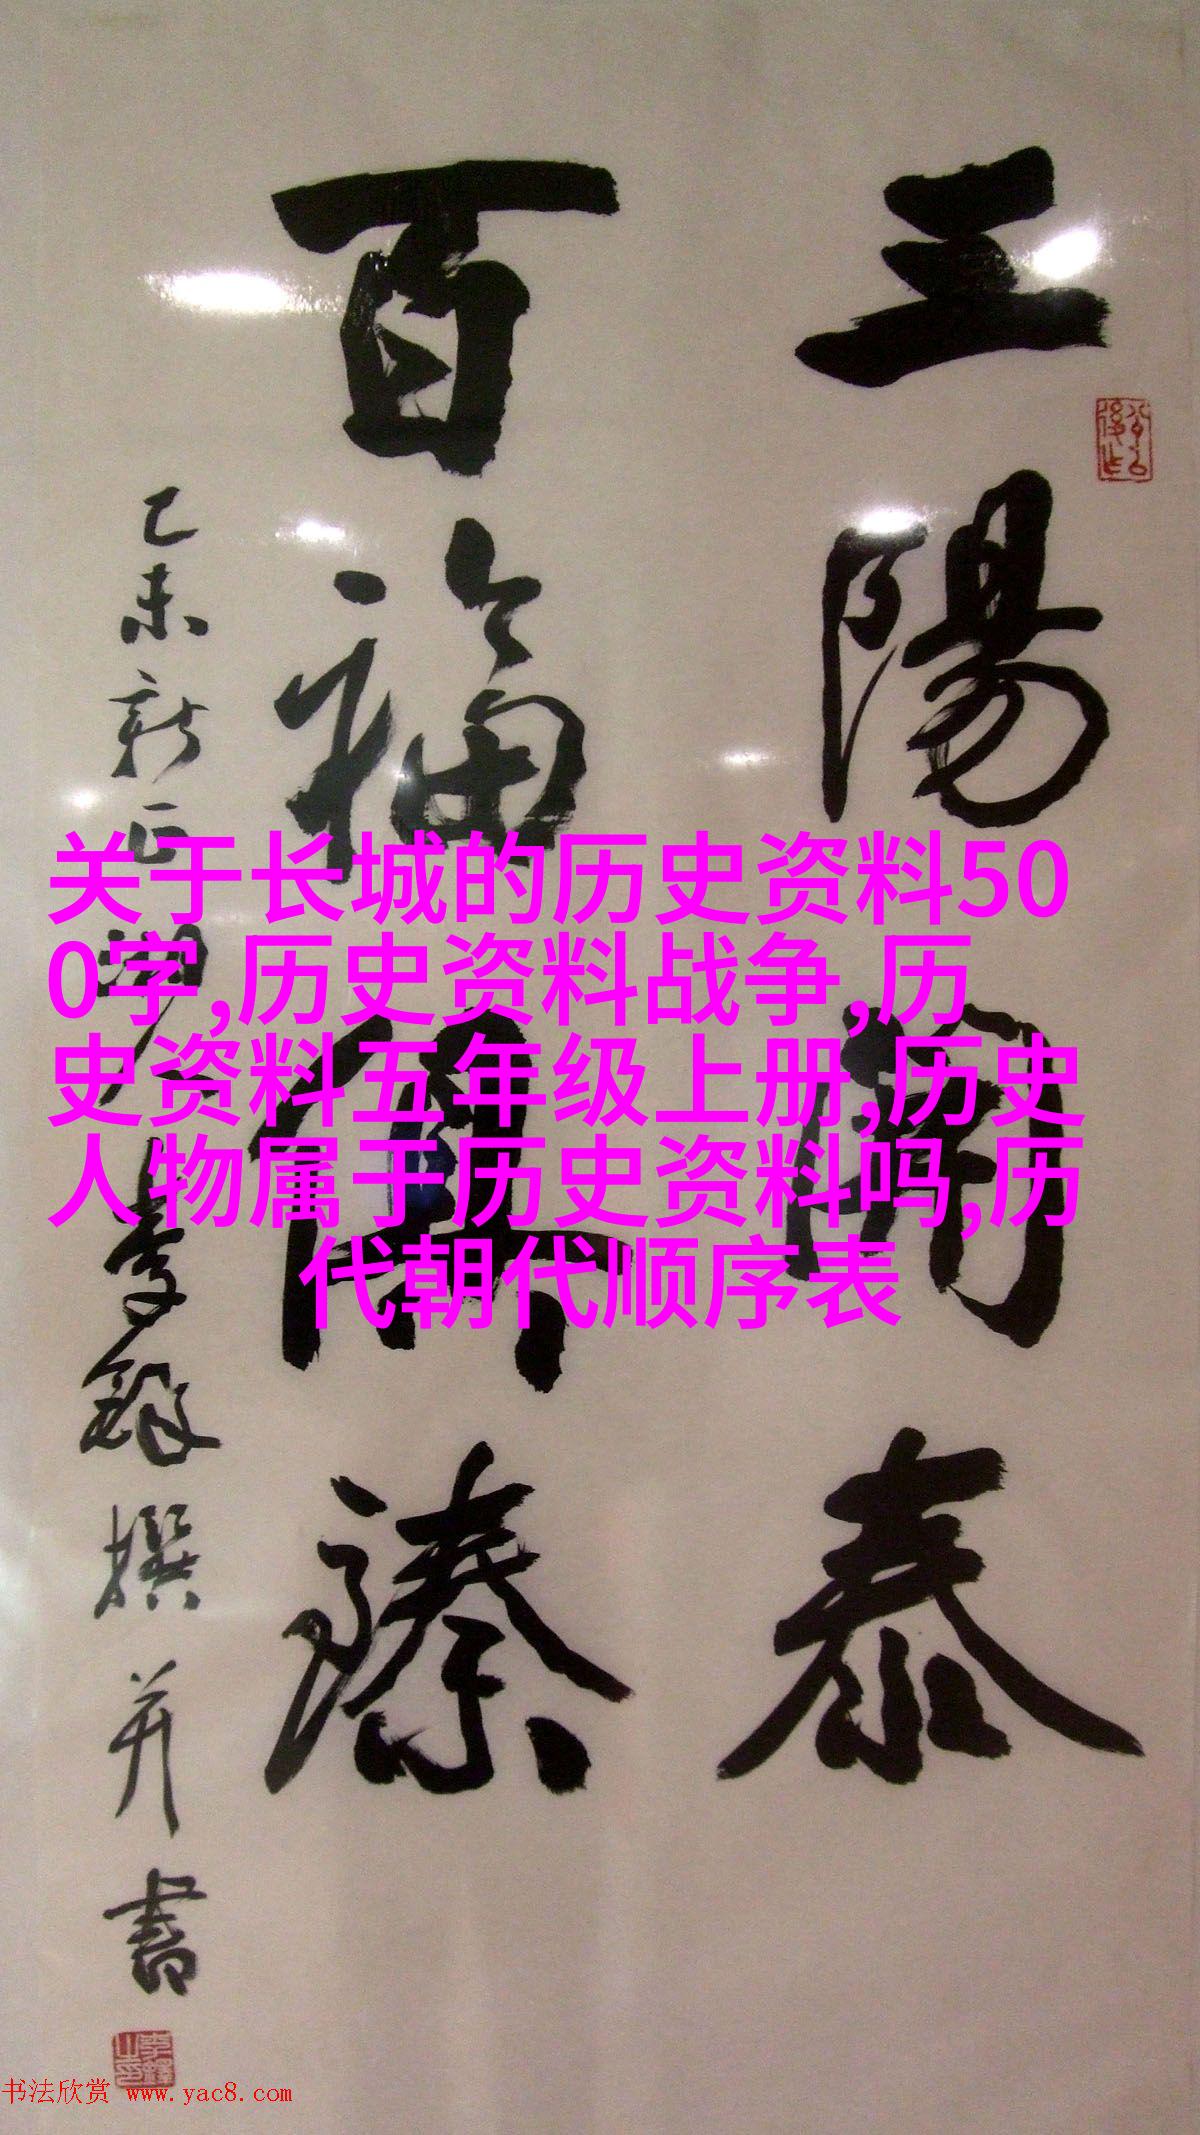 三陽開泰
百福俱臻
乙未新正
李鐸撰并書
关于长城的历史资料50
0字,历史资料战争,历
史资料五年级上册,历史
人物属于历史资料吗,历
代朝代顺序表
书法欣赏 www.yac8.com